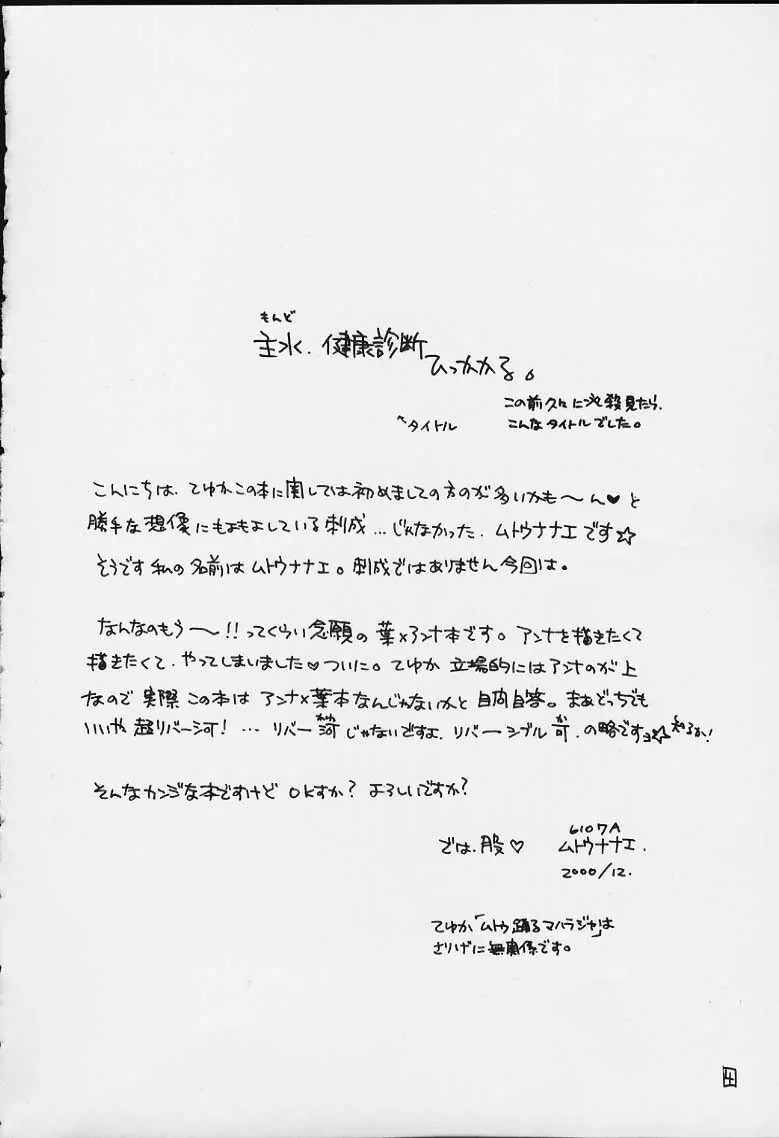 もんど
主水、健康診断
ひっかかる。
この前久々に必殺見たら、
こんなタイトルでした。
↖タイトル
こんにちは、てゆかこの本に関しては初めましての方のが多いかも〜ん♥と
勝手な想像にもよもよしている刺成…じゃなかった、ムトウナナエです☆
そうです私の名前はムトウナナエ。刺成ではありません今回は。
なんなのもう〜!!ってくらい念願の葉×アンナ本です。アンナを描きたくて
描きたくて、やってしまいました♥ついに。てゆか立場的にはアンナのが上
なので実際この本はアンナ×葉本なんじゃないかと自問自答。まあどっちでも
いいや超リバー河! … リバー河じゃないですよ、リバーシブル可、の略ですヨ☆知るか!
そんなカンジな本ですけど OKすか? よろしいですか?
では、股♡
6107A
ムトウナナエ.
2000/12.
てゆか「ムトウ踊るマハラジャ」は
さりげに無関係です。
4